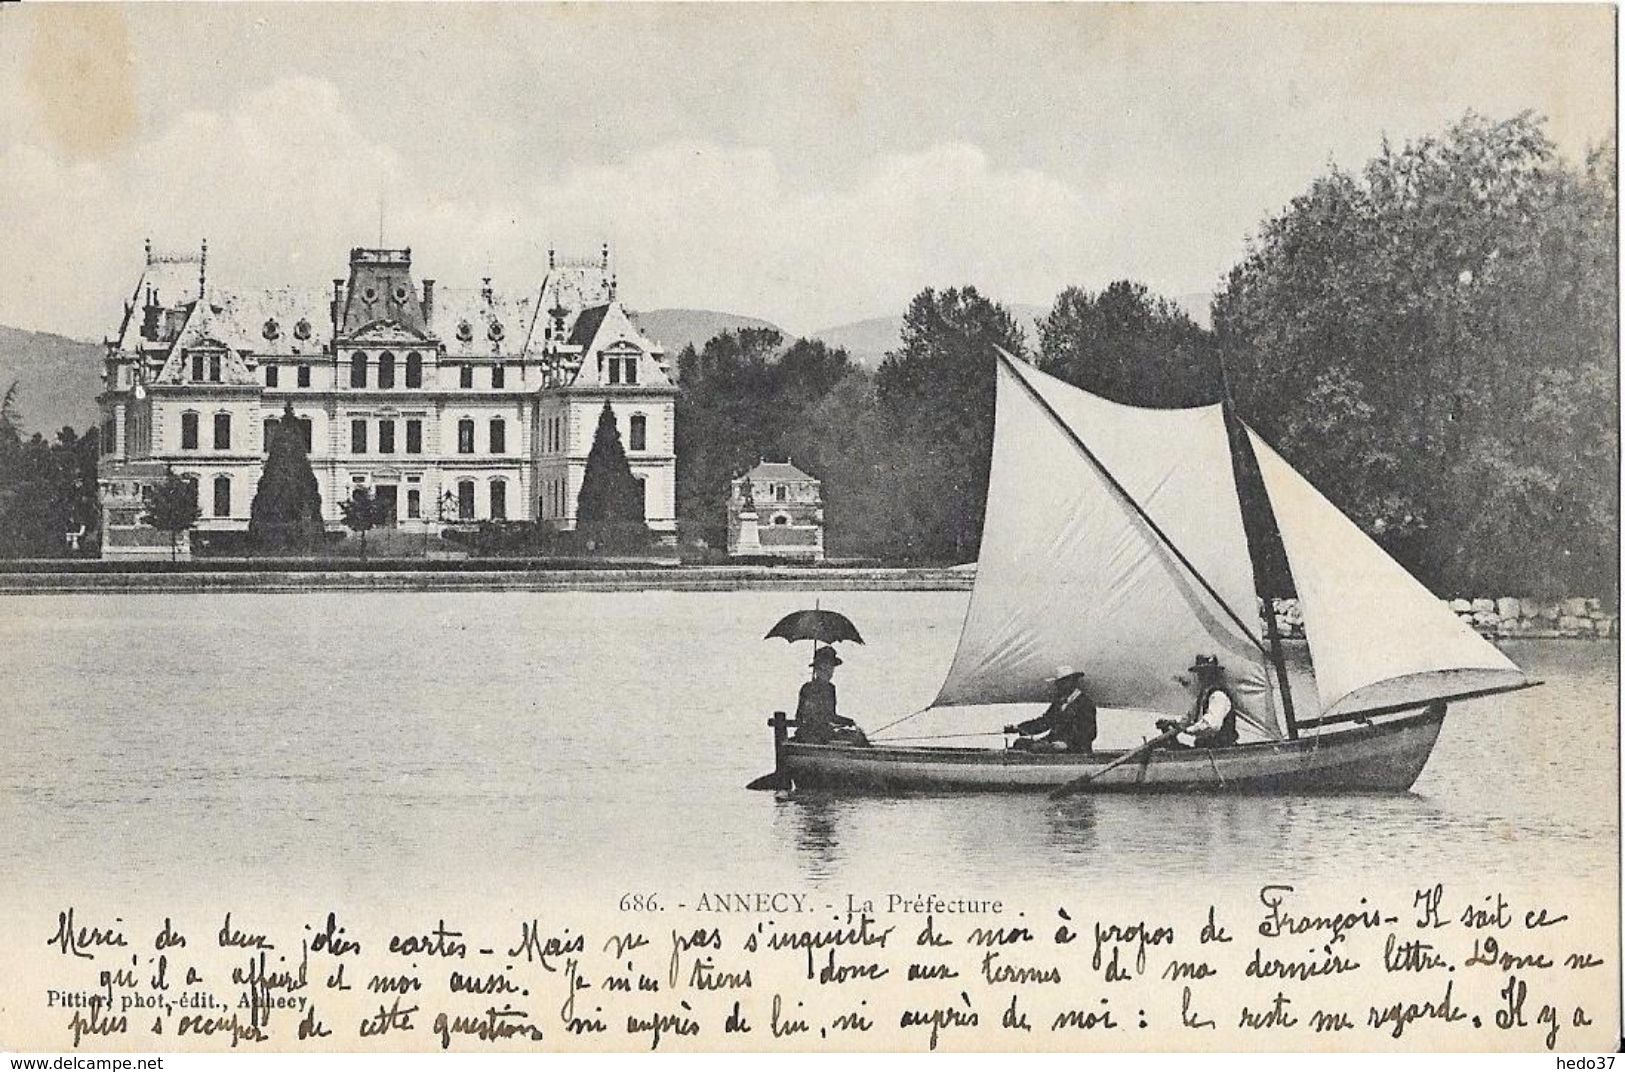 686. - ANNECY. - La Préfecture
Merci des deux jolies cartes - Mais ne pas s'inquiéter de moi à propos de François - Il sait ce
qu'il a affaire et moi aussi. Je m'en tiens donc aux termes de ma dernière lettre. Donc ne
Pittier, phot.-édit., Annecy
plus s'occuper de cette question ni auprès de lui, ni auprès de moi : le reste me regarde. Il y a
hedo37